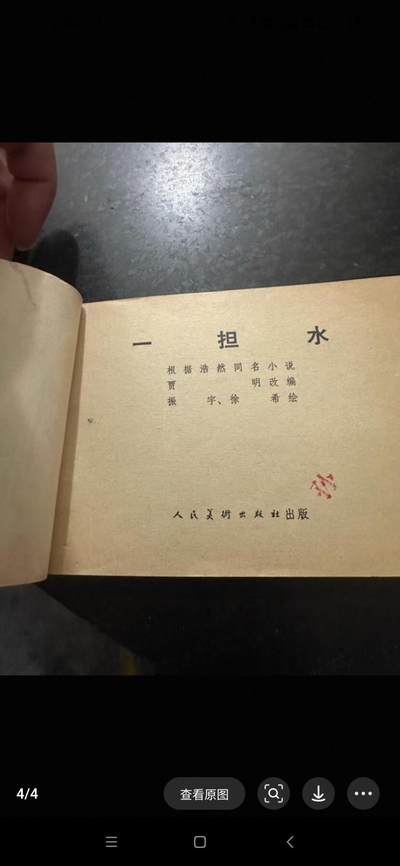 一担水
根据浩然同名小说
贾明改编
振宇、徐希绘
人民美術出版社出版
4/4
查看原图